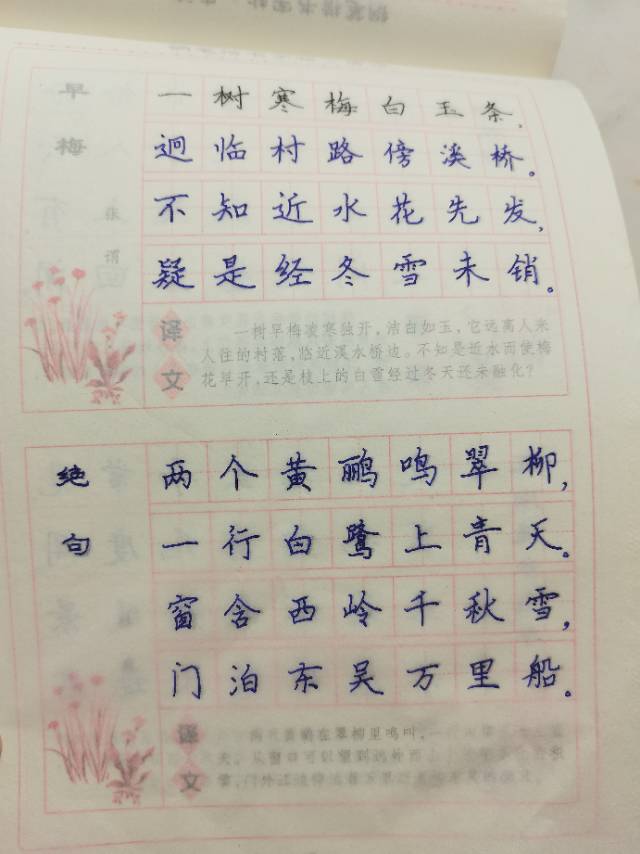 早梅
张谓
一树寒梅白玉条，
迥临村路傍溪桥。
不知近水花先发，
疑是经冬雪未销。
译文
一树早梅凌寒独开，洁白如玉，它远离人来
人往的村落，临近溪水桥边。不知是近水而使梅
花早开，还是枝上的白雪经过冬天还未融化？
绝句
两个黄鹂鸣翠柳，
一行白鹭上青天。
窗含西岭千秋雪，
门泊东吴万里船。
译文
在翠柳里鸣叫，一行
天。从窗口可以望到
雪，门外